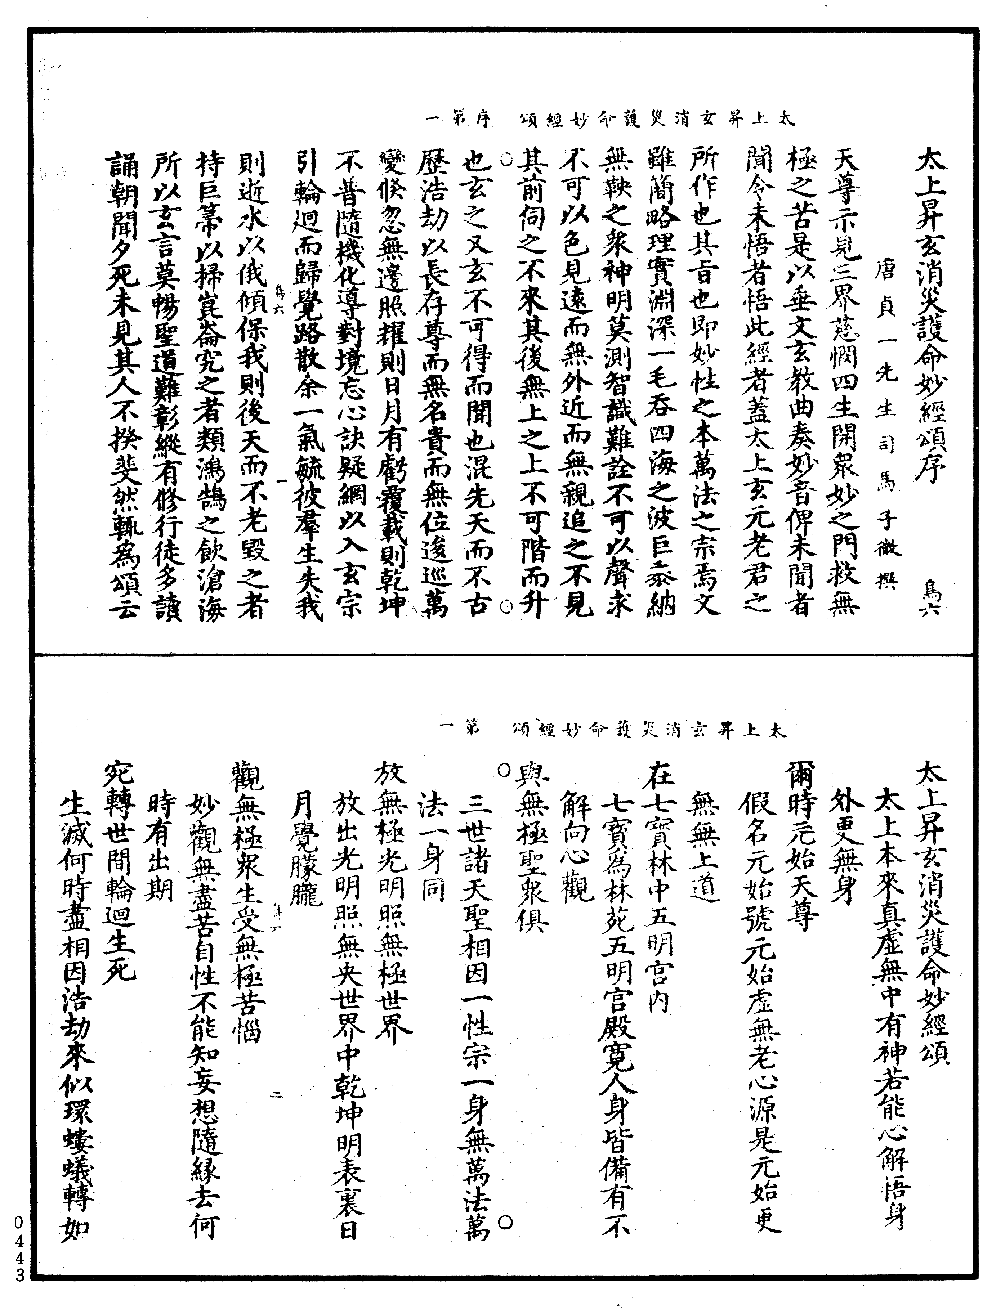 太上昇玄消災護命妙經頌　序第一
太上昇玄消災護命妙經頌序　爲六
唐貞一先生司馬子微撰
天尊示見三界慈憫四生開衆妙之門救無
極之苦是以垂文玄教曲奏妙音俾未聞者
聞令未悟者悟此經者蓋太上玄元老君之
所作也其旨也即妙性之本萬法之宗焉文
雖簡略理實淵深一毛吞四海之波巨黍納
無鞅之衆神明莫測智識難詮不可以聲求
不可以色見遠而無外近而無親追之不見
其前伺之不來其後無上之上不可階而升
也玄之又玄不可得而聞也混先天而不古
歷浩劫以長存尊而無名貴而無位逡巡萬
變倏忽無邊照耀則日月有虧覆載則乾坤
不普隨機化導對境忘心訣疑網以入玄宗
引輪迴而歸覺路散余一氣毓彼羣生失我
則逝水以俄傾保我則後天而不老毀之者
持巨箒以掃崑崙究之者類鴻鵠之飲滄海
所以玄言莫暢聖道難彰縱有修行徒多讀
誦朝聞夕死未見其人不揆斐然輒爲頌云
太上昇玄消災護命妙經頌　第一
太上昇玄消災護命妙經頌
太上本來真虛無中有神若能心解悟身
外更無身
爾時元始天尊
假名元始號元始虛無老心源是元始更
無無上道
在七寶林中五明宮內
七寶爲林苑五明宮殿寬人身皆備有不
解向心觀
與無極聖衆俱
三世諸天聖相因一性宗一身無萬法萬
法一身同
放無極光明照無極世界
放出光明照無央世界中乾坤明表裏日
月覺朦朧
觀無極衆生受無極苦惱
妙觀無盡苦自性不能知妄想隨緣去何
時有出期
宛轉世間輪迴生死
生滅何時盡相因浩劫來似環螻蟻轉如
0443